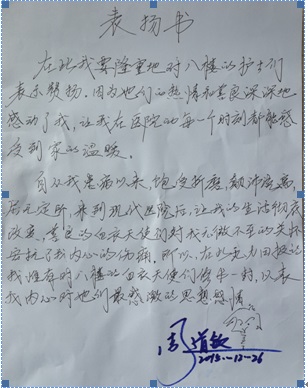 表扬书
在此我要隆重地对八楼的护士们
表示赞扬。因为她们的热情和善良深深地
感动了我，让我在医院的每一个时刻都能感
受到家的温暖。
自从我患病以来，饱受折磨，颠沛流离，
居无定所，来到现代医院后，让我的生活彻底
改变，善良的白衣天使们对我无微不至的关怀
安抚了我内心的伤痛，所以，在此无力回报的
我唯有对八楼的白衣天使们修书一封，以表
我内心对她们最感激的思想感情
周道钦
2013-12-26